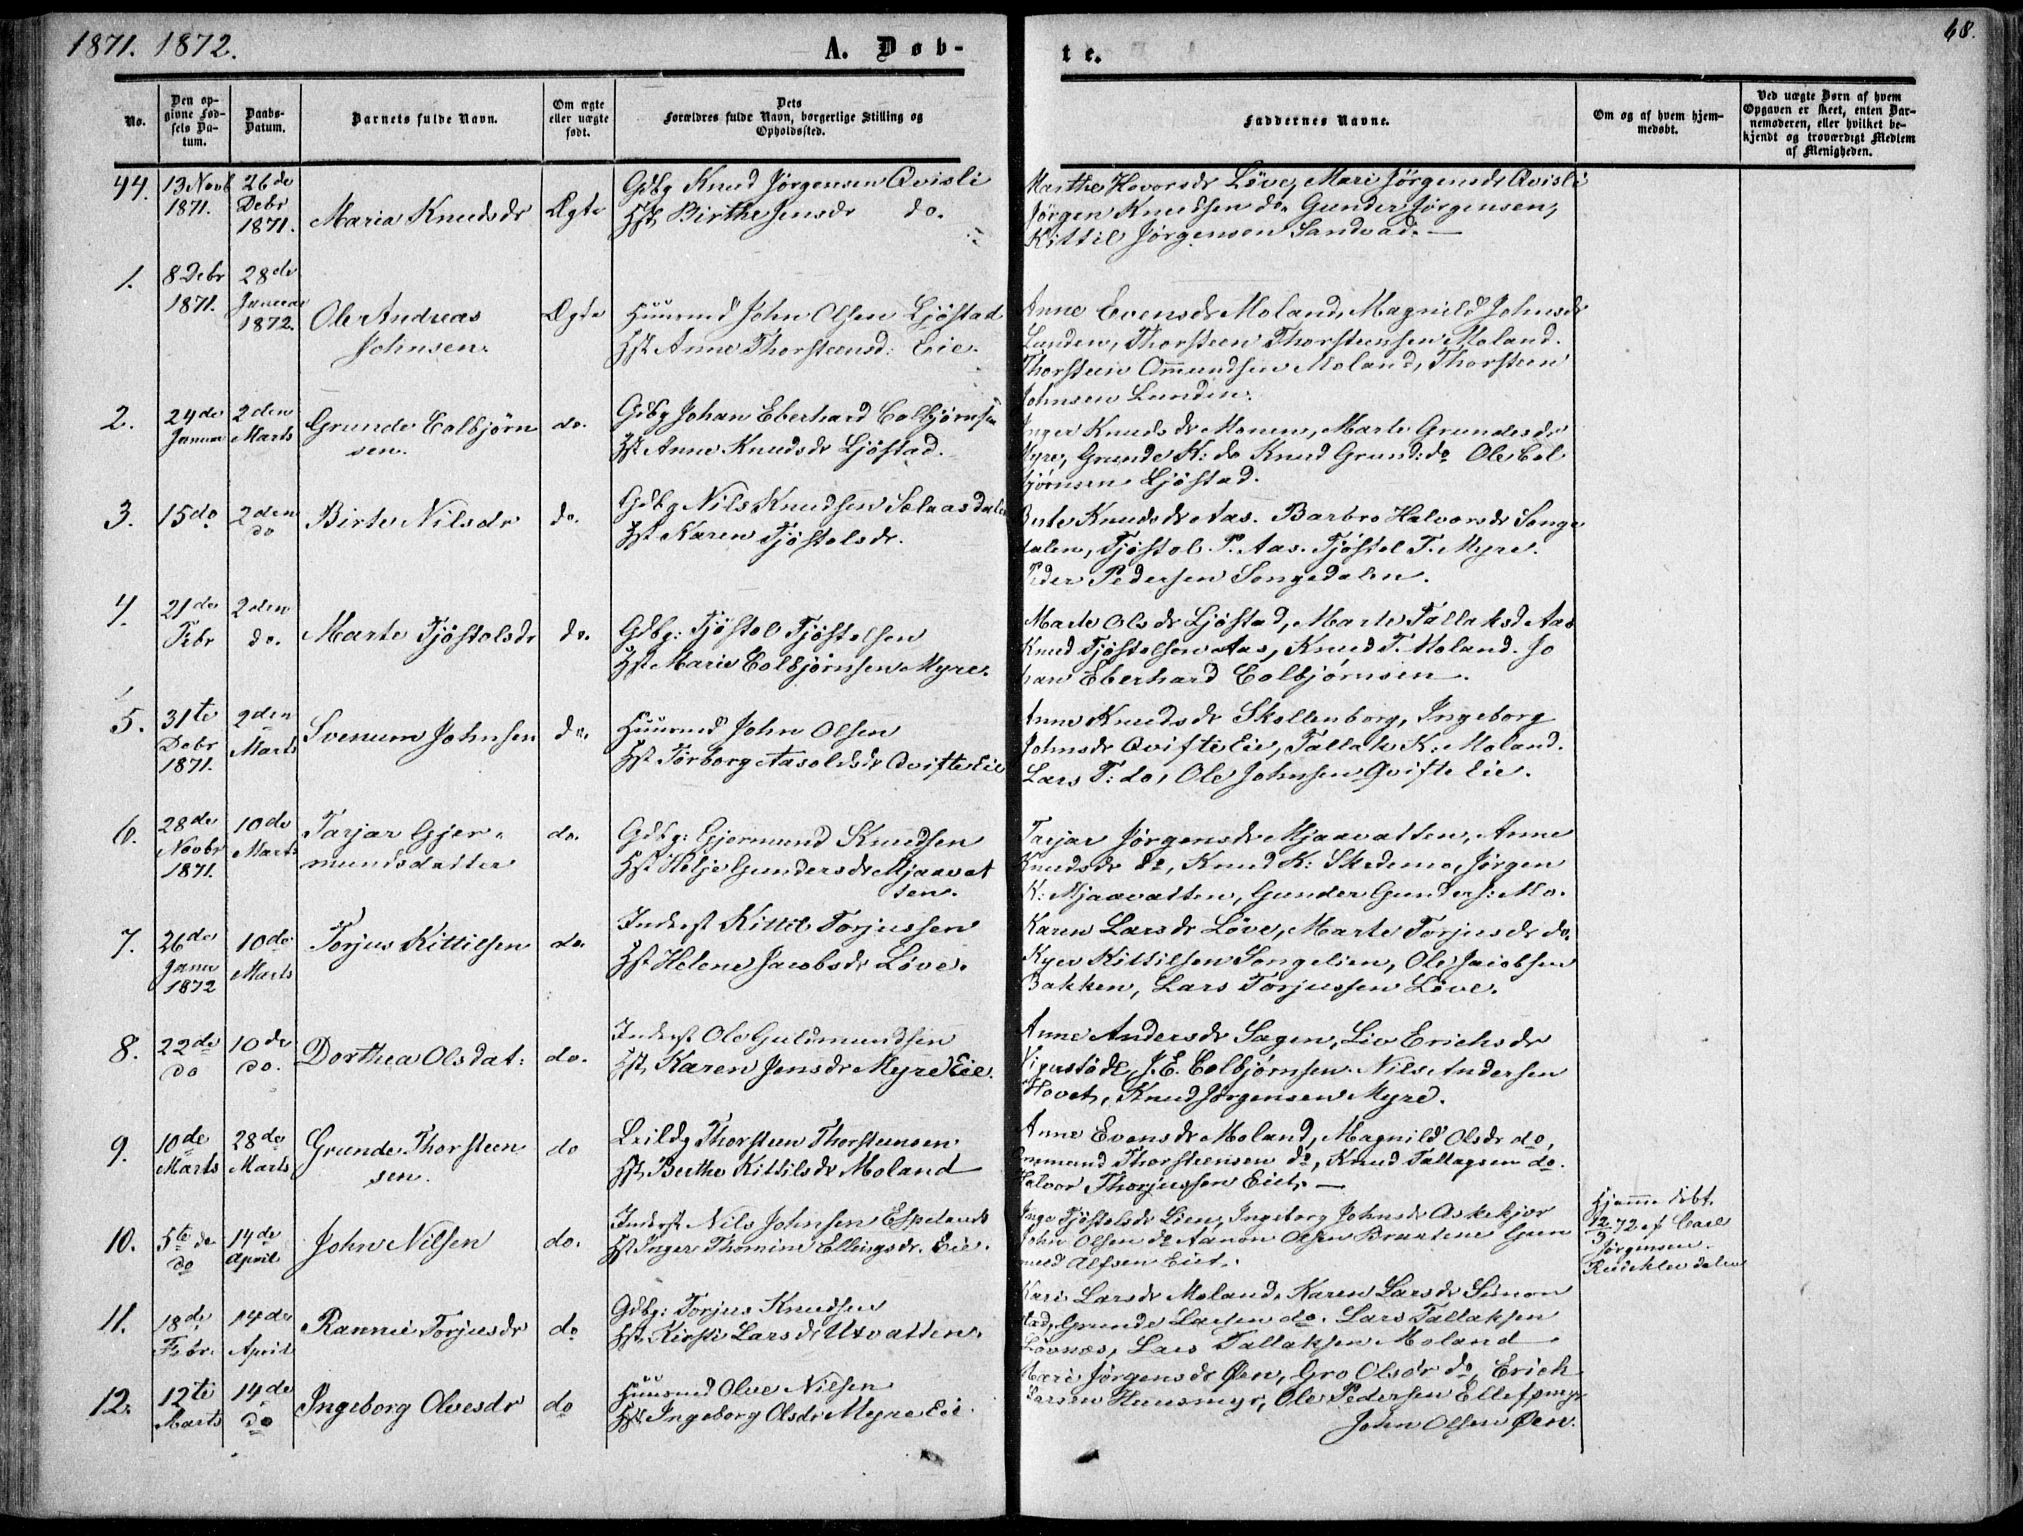 1871. 1872.
A. Døb-
te.
68.
No.
Den op-
givne Fød-
sels Da-
tum.
Daabs-
Datum.
Barnets fulde Navn.
Om ægte
eller uægte
født.
Dets
Forældres fulde Navn, borgerlige Stilling og
Opholdssted.
Faddernes Navne.
Om og af hvem hjem-
medøbt.
Ved uægte Børn af hvem
Opgaven er skeet, enten Bar-
nemoderen, eller hvilket be-
kjendt og troværdigt Medlem
af Menigheden.
44.
13 Novb
1871.
26de
Debr
1871.
Maria Knudsdr
Ægte
Gdbg Knud Jørgensen Qvisli
Hst Birthe Jensdr do.
Marthe Hovorsdr Löve, Mari Jörgensdr Qvisli
Jörgen Knudsen do. Gunder Jörgensen,
Kittil Jørgensen Sandvad. —
1.
8 Debr
1871.
28de
Januar
1872.
Ole Andreas
Johnsen.
Ægte
Huusmd John Olsen Ljöstad
Hst Anne Thorsteensd: Eie.
Anne Evensdr Moland, Magnild Johnsdr
Lunden, Thorsteen Thorsteensen Moland.
Thorsteen Ommundsen Moland, Thorsteen
Johnsen Lunden.
2.
24de
Januar
2den
Marts
Grunde Colbjörn
sen.
do.
Gdbg Johan Eberhard Colbjørnsen
Hst Anne Knudsdr Ljöstad.
Inger Knudsdr Monen, Marte Grundesdr
Myre, Grunde K: do Knud Grund: do Ole Col
bjørnsen Ljöstad.
3.
15do
2den
do
Birte Nilsdr
do.
Gdbg Nils Knudsen Selaasdalen
Hst Karen Tjöstolsdr.
Birte Knudsdr Aas. Barbro Halvorsdr Songe
dalen, Tjöstol P. Aas. Tjöstol T. Myre.
Peder Pedersen Songedalen.
4.
21de
Febr
2den
do.
Marte Tjöstolsdr
do.
Gdbg: Tjöstol Tjöstolsen
Hst Marie Colbjørnsen Myre.
Marte Olsdr Ljöstad, Marte Tallaksd Aas
Knud Tjöstolsen Aas, Knud T. Moland. Jo
han Eberhard Colbjørnsen.
5.
31te
Debr
1871.
2den
Marts
Svenum Johnsen
do.
Huusmd John Olsen
Hst Torborg Aasoldsdr Qvifte Eie
Anne Knudsdr Skollenborg, Ingeborg
Johnsdr Qvifte Eie, Tallak K: Moland.
Lars T: do, Ole Johnsen Qvifte Eie.
6.
28de
Novbr
1871.
10de
Marts
Tarjar Gjer-
mundsdatter
do.
Gdbg: Gjermund Knudsen
Hst Helje Gundersdr Mjaavat
ten.
Tarjar Jörgensdr Mjaavatten, Anne
Knudsdr do, Knud K: Skedemo, Jörgen
K: Mjaavatten, Gunder Gunders: Mo.
7.
26de
Janr
1872
10de
Marts
Torjus Kittilsen
do.
Inderst Kittil Torjussen
Hst Helene Jacobsdr Löve.
Karen Larsdr Löve, Marte Torjusdr do.
Kyer Kittilsen Songelien, Ole Jacobsen
Bakken, Lars Torjussen Löve.
8.
22de
do
10de
do.
Dorthea Olsdat:
do.
Inderst Ole Guldmundsen
Hst Karen Jensdr Myre Eie.
Anne Andersdr Sagen, Liv Erichsdr
Vigerstöl, J. E. Colbjørnsen. Nils Andersen
Hovet, Knud Jörgensen Myre.
9.
10de
Marts
28de
Marts
Grunde Thorsteen
sen.
do
Leildg Thorsteen Thorsteensen
Hst Berthe Kittilsdr Moland
Anne Evensdr Moland, Magnild Olsdr do,
Ommund Thorsteensen do, Knud Tallagsen do.
Halvor Thorjussen Eiet. —
10.
5te
do
14de
April
John Nilsen
do.
Inderst Nils Johnsen Espelands
Hst Inger Thomine Ellingsdr. Eie.
Inge Tjöstolsdr Lien, Ingeborg Johnsdr Askekjær
John Olsen do Aanon Olsen Braatene Gun
Alfsen Eiet.
Hjemmedöbt.
12/3 72 af Carl
Jørgensen.
11.
18de
Febr.
14de
April
Rannie Torjusdr
do
Gdbg: Torjus Knudsen
Hst. Kirsti Larsdr Uxvatten.
Kari Larsdr Moland, Karen Larsdr Simon
stad, Grunde Larsen do. Lars Tallaksen
Lövnæs, Lars Tallaksen Moland
12.
12te
Marts
14de
do
Ingeborg Olvesdr
do
Huusmd Olve Nilsen
Hst Ingeborg Olsdr Myre Eie.
Mari Jörgensdr Öen, Gro Olsdr do, Erich
Larsen Huusmyr, Ole Pedersen Ellefsmyr
John Olsen Öen.